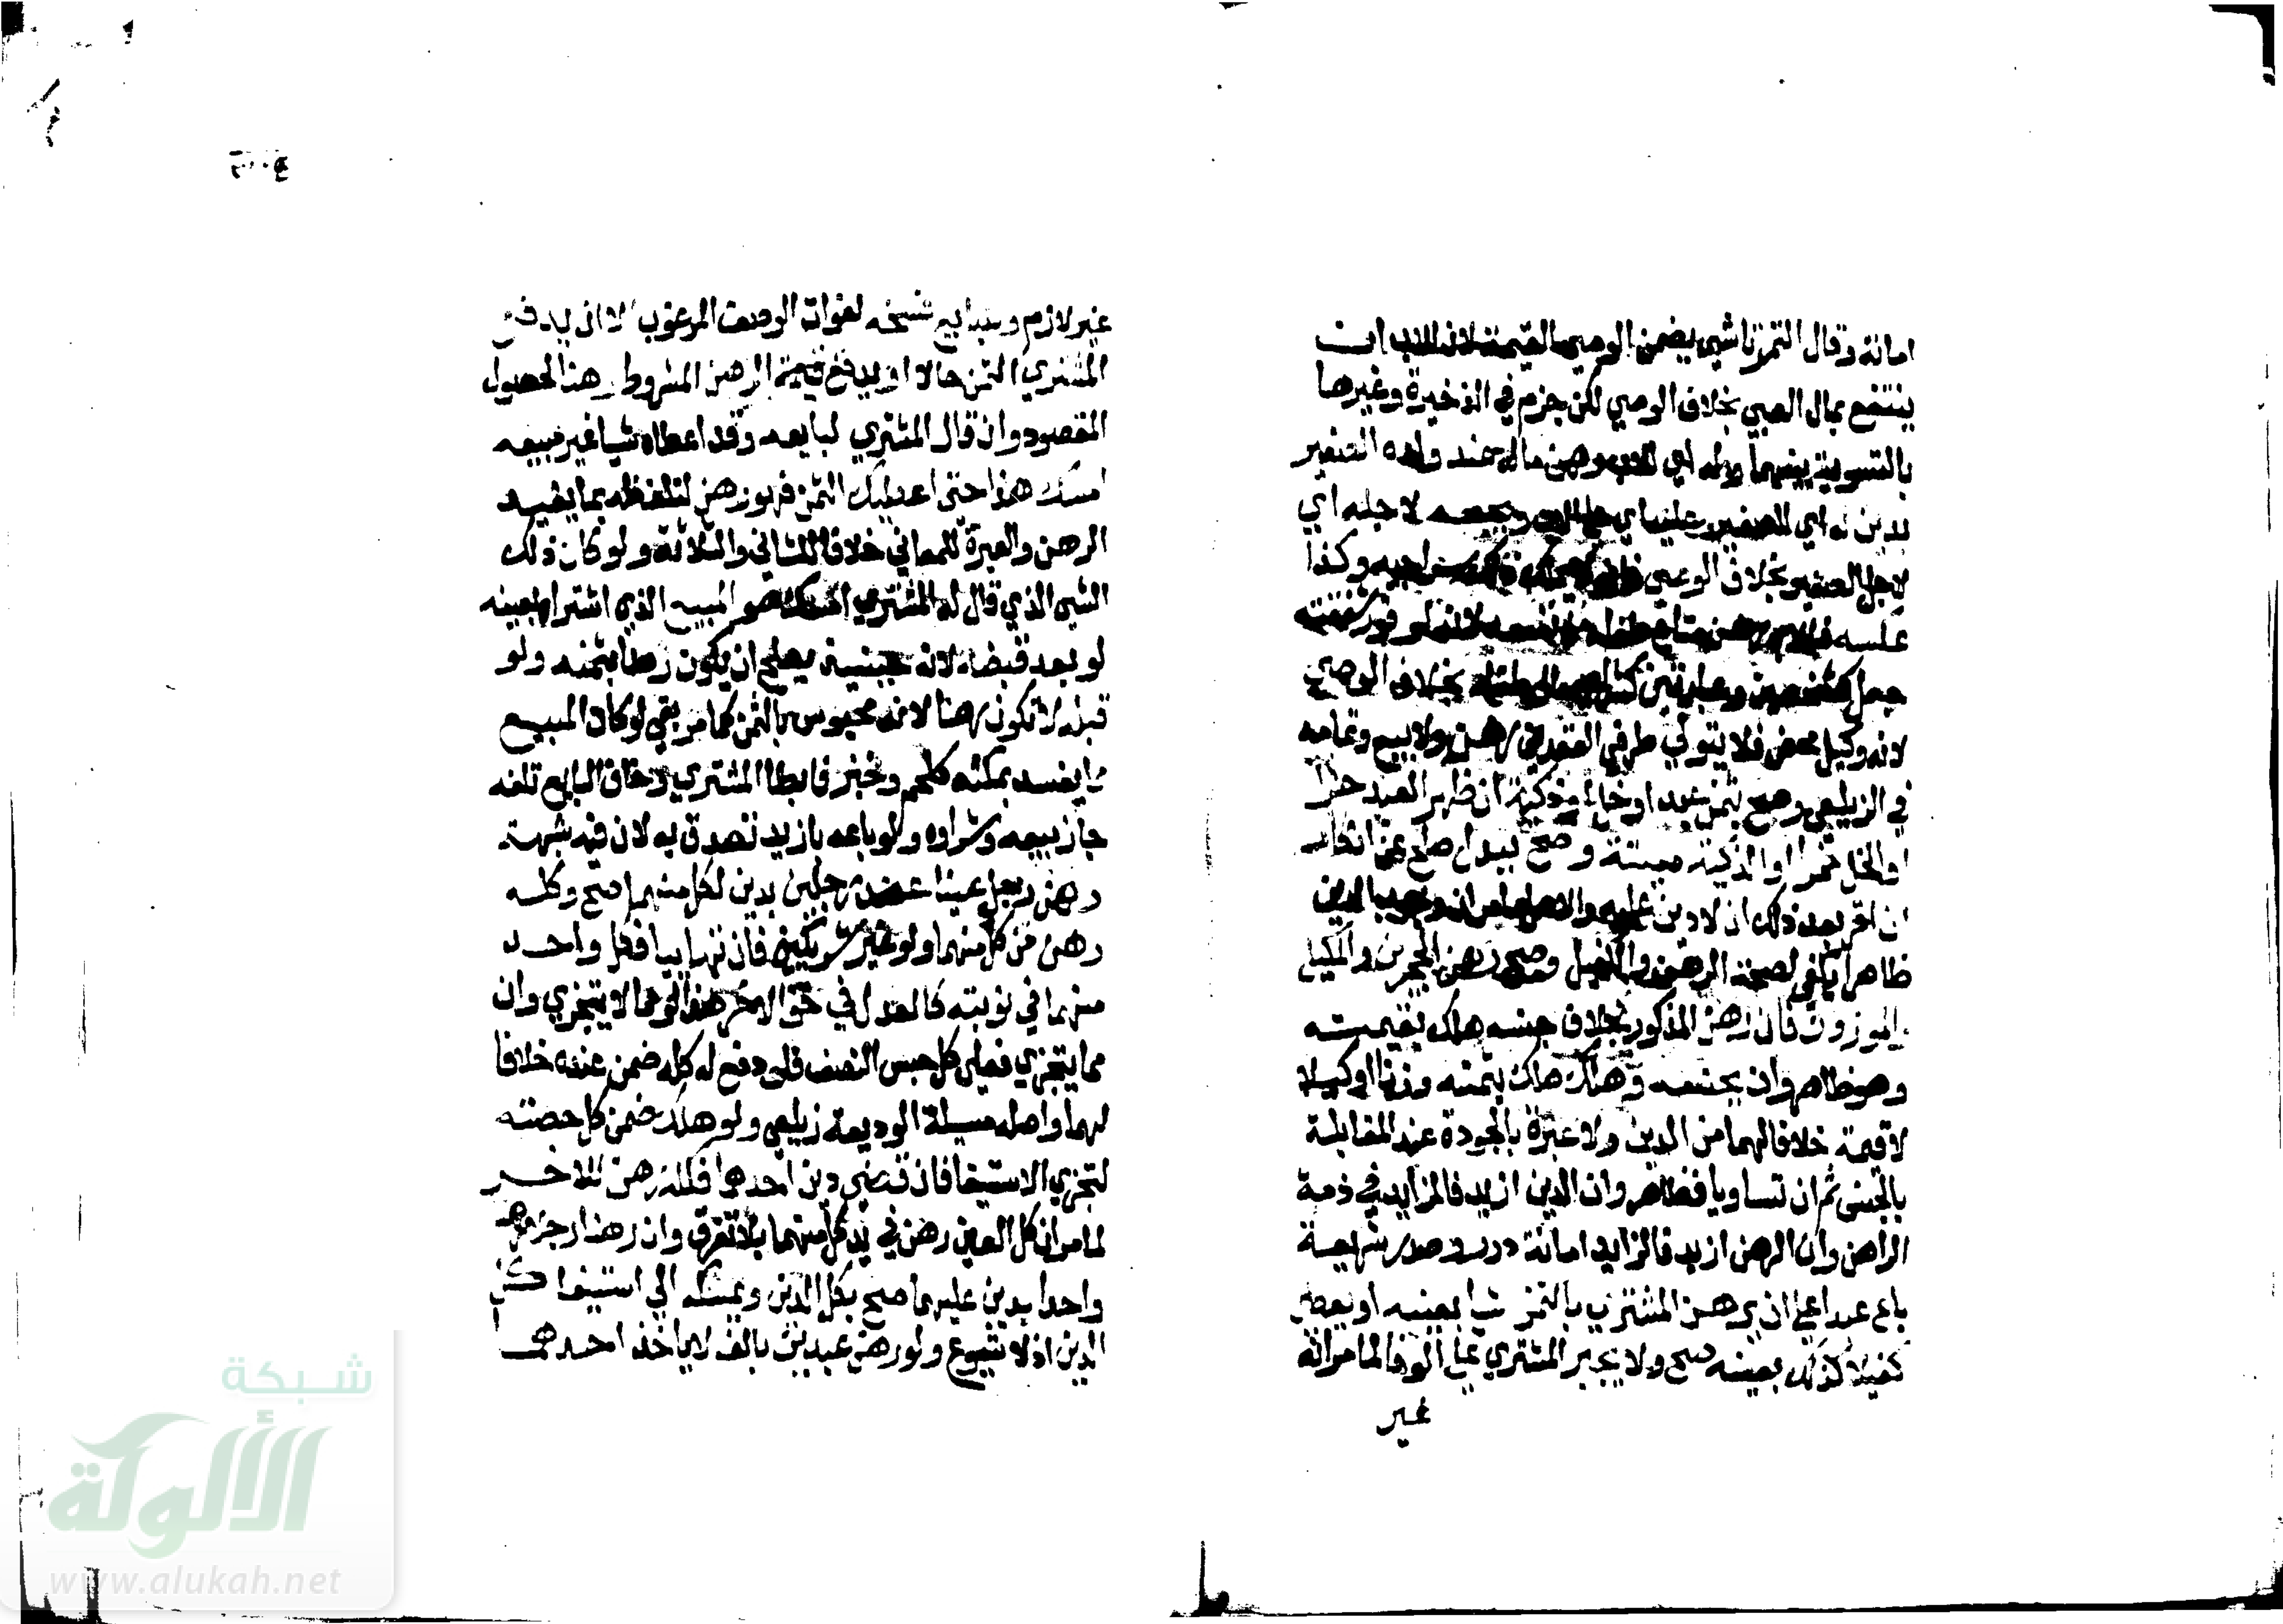 امانة وقال التمرتاشي يضمن الوصي القيمة لان للاب ان
ينتفع بمال الصبي بخلاف الوصي لكن جزم في الذخيرة وغيرها
بالتسوية بينهما وله اي للاب رهن ماله عند ولده الصغير
بدين له اي للصغير عليه اي على الاب ويحبسه لاجله اي
لاجل الصغير بخلاف الوصي وكذا
عكسه فللاب رهن متاع طفله من نفسه لانه لوفور شفقته
جعل كشخصين وعبارتين بخلاف الوصي
لانه وكيل محض فلا يتولي طرفي العقد في رهن ولا بيع وتمامه
في الزيلعي وصح بثمن عبد او خل او ذكية ان ظهر العبد حرا
او الخل خمرا او الذكية ميتة وصح ببدل صلح عن انكار
ان اقر بعد ذلك ان لا دين عليه والاصل ما مر ان وجوب الدين
ظاهرا يكفي لصحة الرهن والكفيل وصح رهن الحجرين والمكيل
والموزون فان رهن المذكور بخلاف جنسه هلك بقيمته
وهو ظاهر وان بجنسه وهلك هلك بمثله وزنا او كيلا
لا قيمة خلافا لهما من الدين ولا عبرة بالجودة عند المقابلة
بالجنس ثم ان تساويا فظاهر وان الدين ازيد فالزايد في ذمة
الراهن وان الرهن ازيد فالزايد امانة درر وصدر شريعة
باع عبدا على ان يرهن المشتري بالثمن شيا بعينه او يعطي
كفيلا كذلك بعينه صح ولا يجبر المشتري على الوفا لما مر انه
غير
غير لازم وللبايع فسخه لفوات الوصف المرغوب الا ان يدفع
المشتري الثمن حالا او يدفع قيمة الرهن المشروط رهنا لحصول
المقصود وان قال المشتري لبايعه وقد اعطاه شيا غير مبيعه
امسك هذا حتى اعطيك الثمن فهو رهن لتلفظه بما يفيد
الرهن والعبرة للمعاني خلافا للثاني والثلاثة ولو كان ذلك
الشي الذي قال له المشتري امسكه هو المبيع الذي اشتراه بعينه
لو بعد قبضه لانه حينيذ يصلح ان يكون رهنا بثمنه ولو
قبله لا تكون رهنا لانه محبوس بالثمن كما مر بقي لو كان المبيع
مما يفسد بمكثه كلحم وخبز فابطا المشتري وخاف البايع تلفه
جاز بيعه وشراوه ولو باعه بازيد تصدق به لان فيه شبهة
رهن رجل عينا عند رجلين بدين لكل منهما صح وكله
رهن من كل منهما ولو غير شريكين فان تهايا فكل واحد
منهما في نوبته كالعدل في حق الاخر هذا لو مما لا يتجزي وان
مما يتجزي فعلى كل حبس النصف فلو دفع له كله ضمن عنده خلافا
لهما واصله مسيلة الوديعة زيلعي ولو هلك ضمن كل حصته
لتجزي الاستيفا فان قضي دين احدهما فكله رهن للاخر
لما مر ان كل العين رهن في يد كل منهما بلا تفرق وان رهنا رجلا رهنا
واحدا بدين عليهما صح بكل الدين ويمسكه الي استيفا كل
الدين اذ لا شيوع ولو رهن عبدين بالف لا ياخذ احدهما
شبكة
الألوكة
www.alukah.net